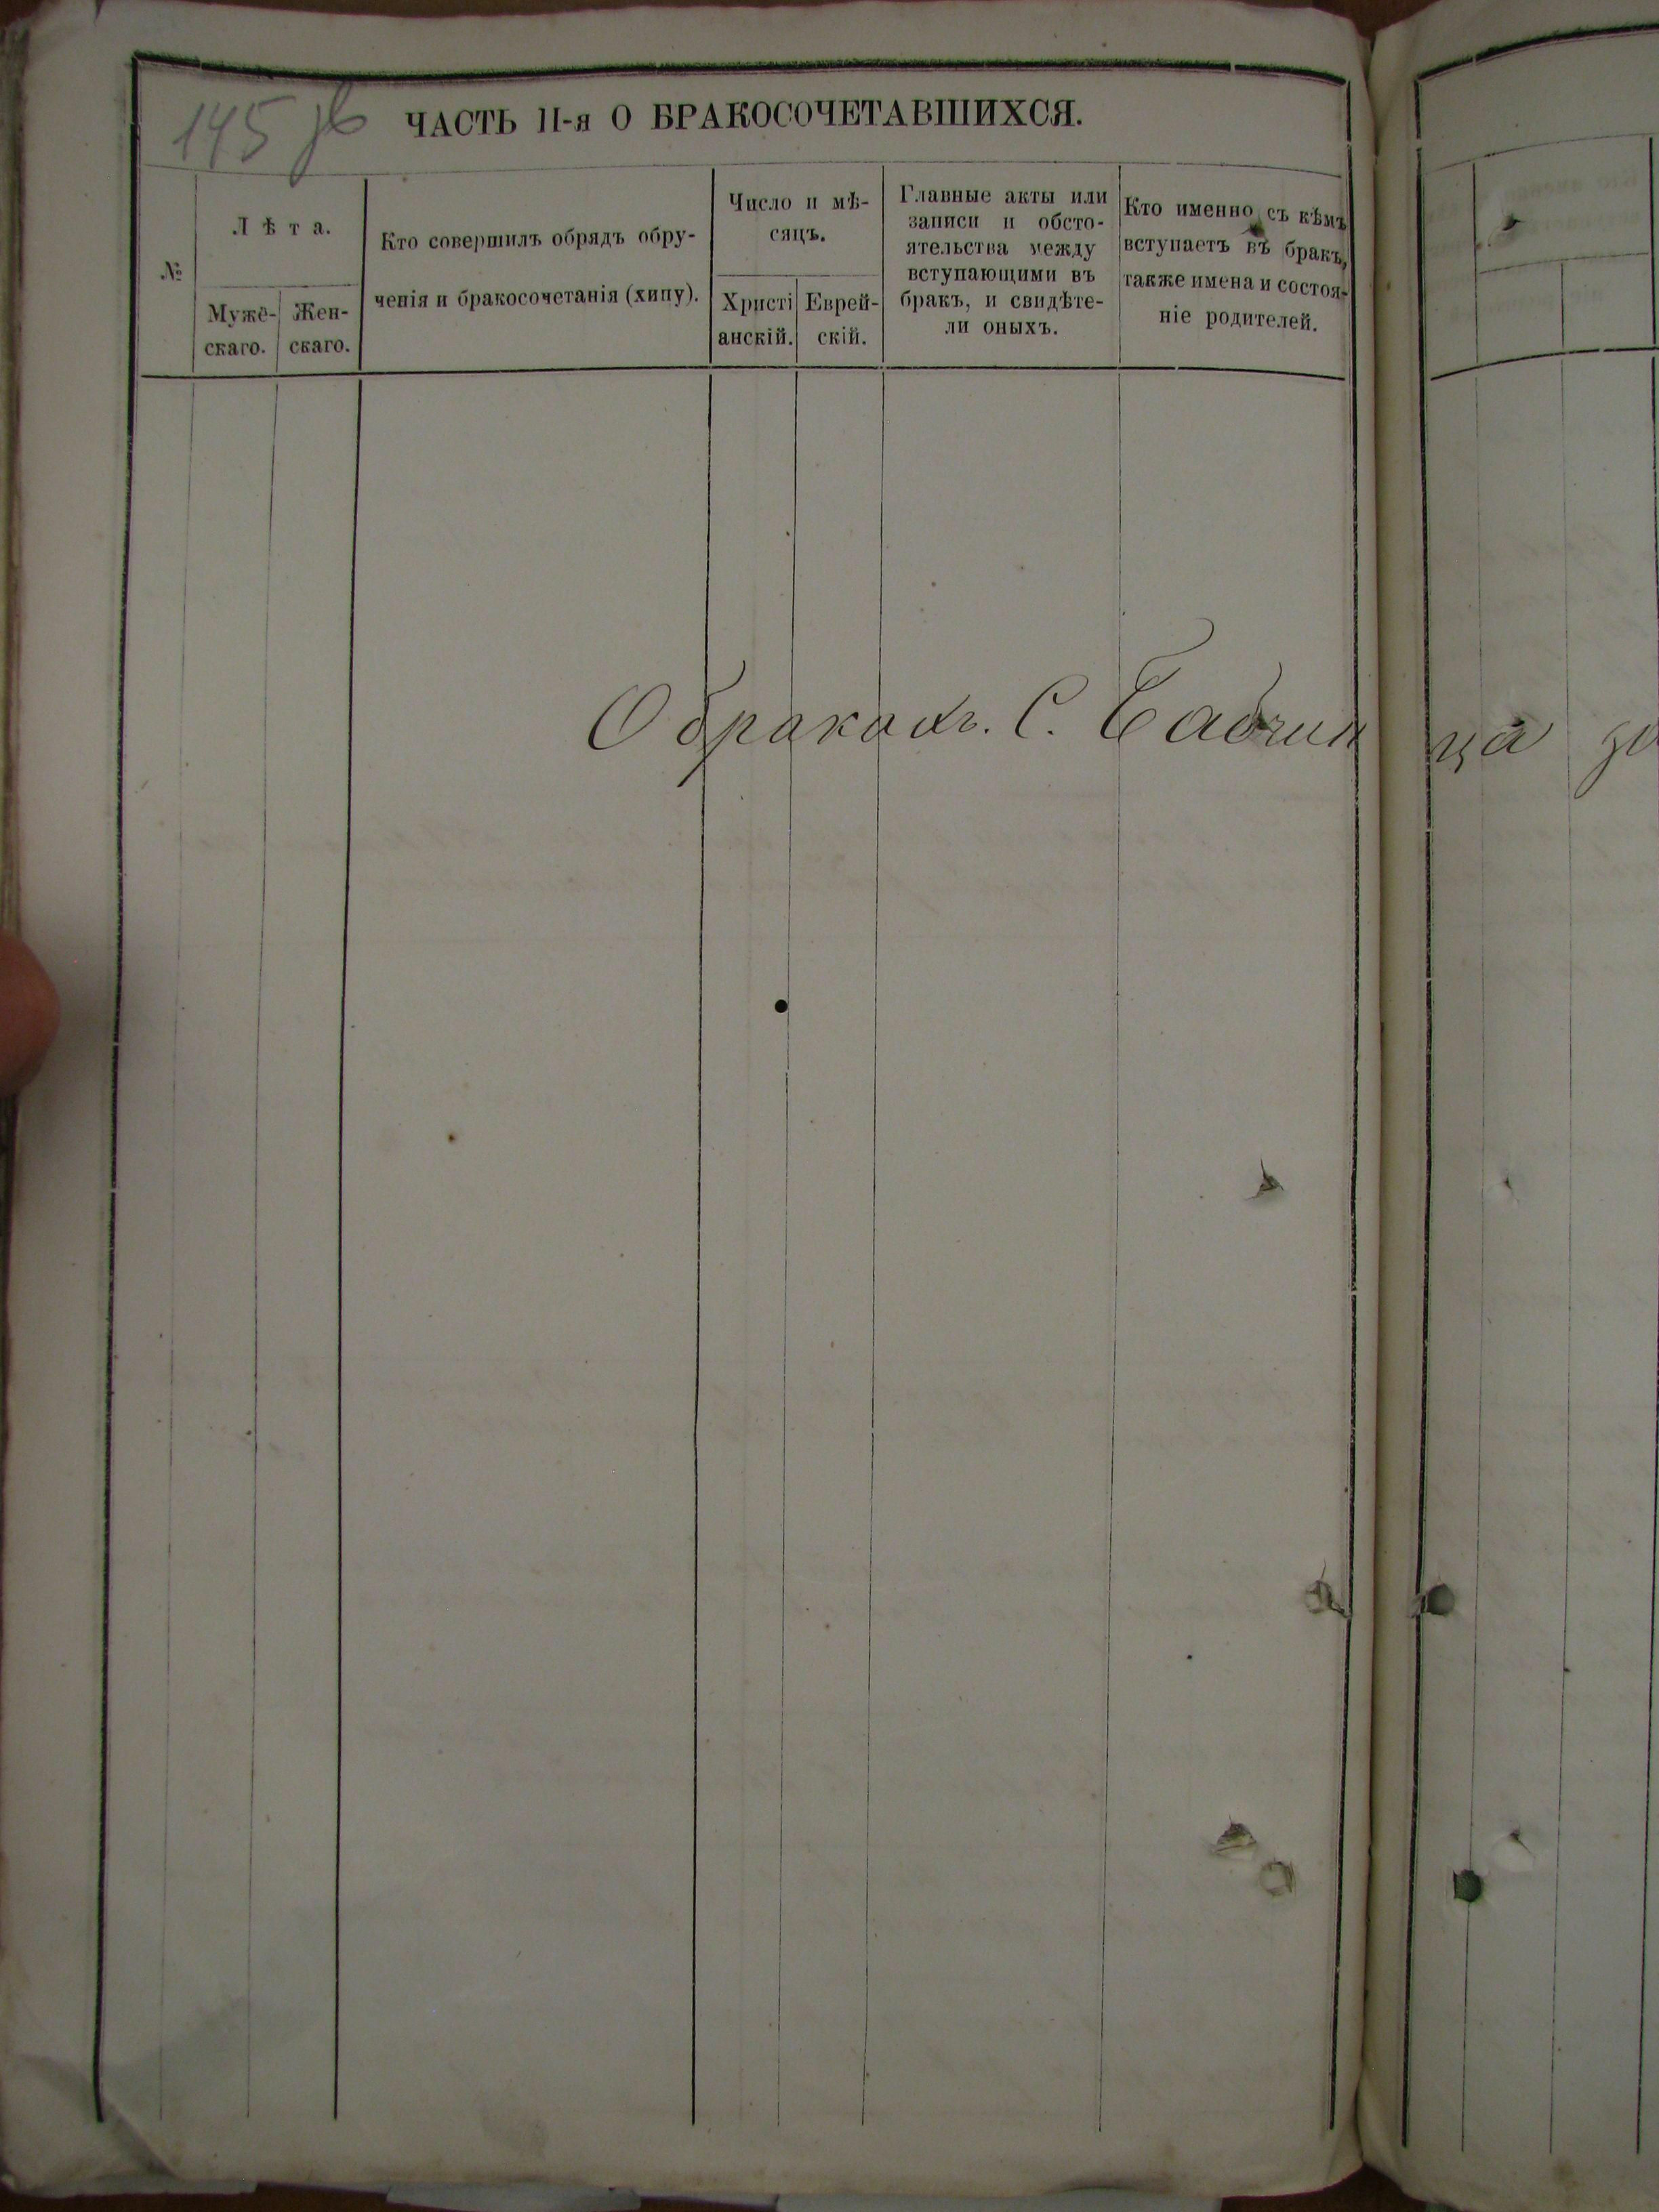 145 об
ЧАСТЬ II-я О БРАКОСОЧЕТАВШИХСЯ.
№
Лѣта.
Мужe-
скаго.
Жен-
скаго.
Кто совершилъ обрядъ обру-
ченія и бракосочетанія (хипу).
Число и мѣ-
сяцъ.
Христі
анскій.
Еврей-
скій.
Главные акты или
записи и обсто-
ятельства между
вступающими въ
бракъ, и свидѣте-
ли оныхъ.
Кто именно съ кѣмъ
вступаетъ въ бракъ,
также имена и состоя-
ніе родителей.
О бракахъ. С. Бабчинца за